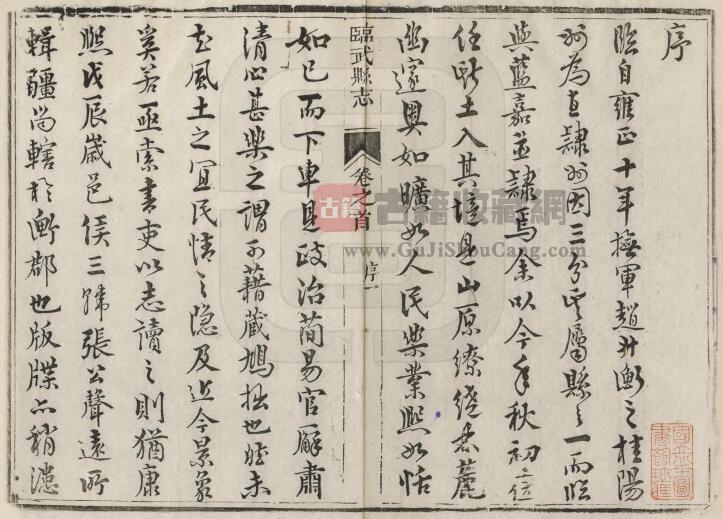 序
臨自雍正十年撫軍趙升衡之桂陽
州為直隸州因三分其屬縣之一而臨
與藍嘉並隸焉余以今年秋初
任斯土入其境見山原繚繞
幽邃奧如曠如人民樂業熙如恬
臨武縣志
卷之首
序一
如已而下車見政治簡易官廨肅
清心甚樂之謂可藉藏鳩拙也
風土之宜民情之隱及近今景象
奚若亟索書吏以志讀之則猶康
熙戊辰歲邑侯三韓張公聲遠所
輯疆尚轄於衡郡也版牒亦稍
古籍
古籍收藏網
www.GuJiShouCang.com